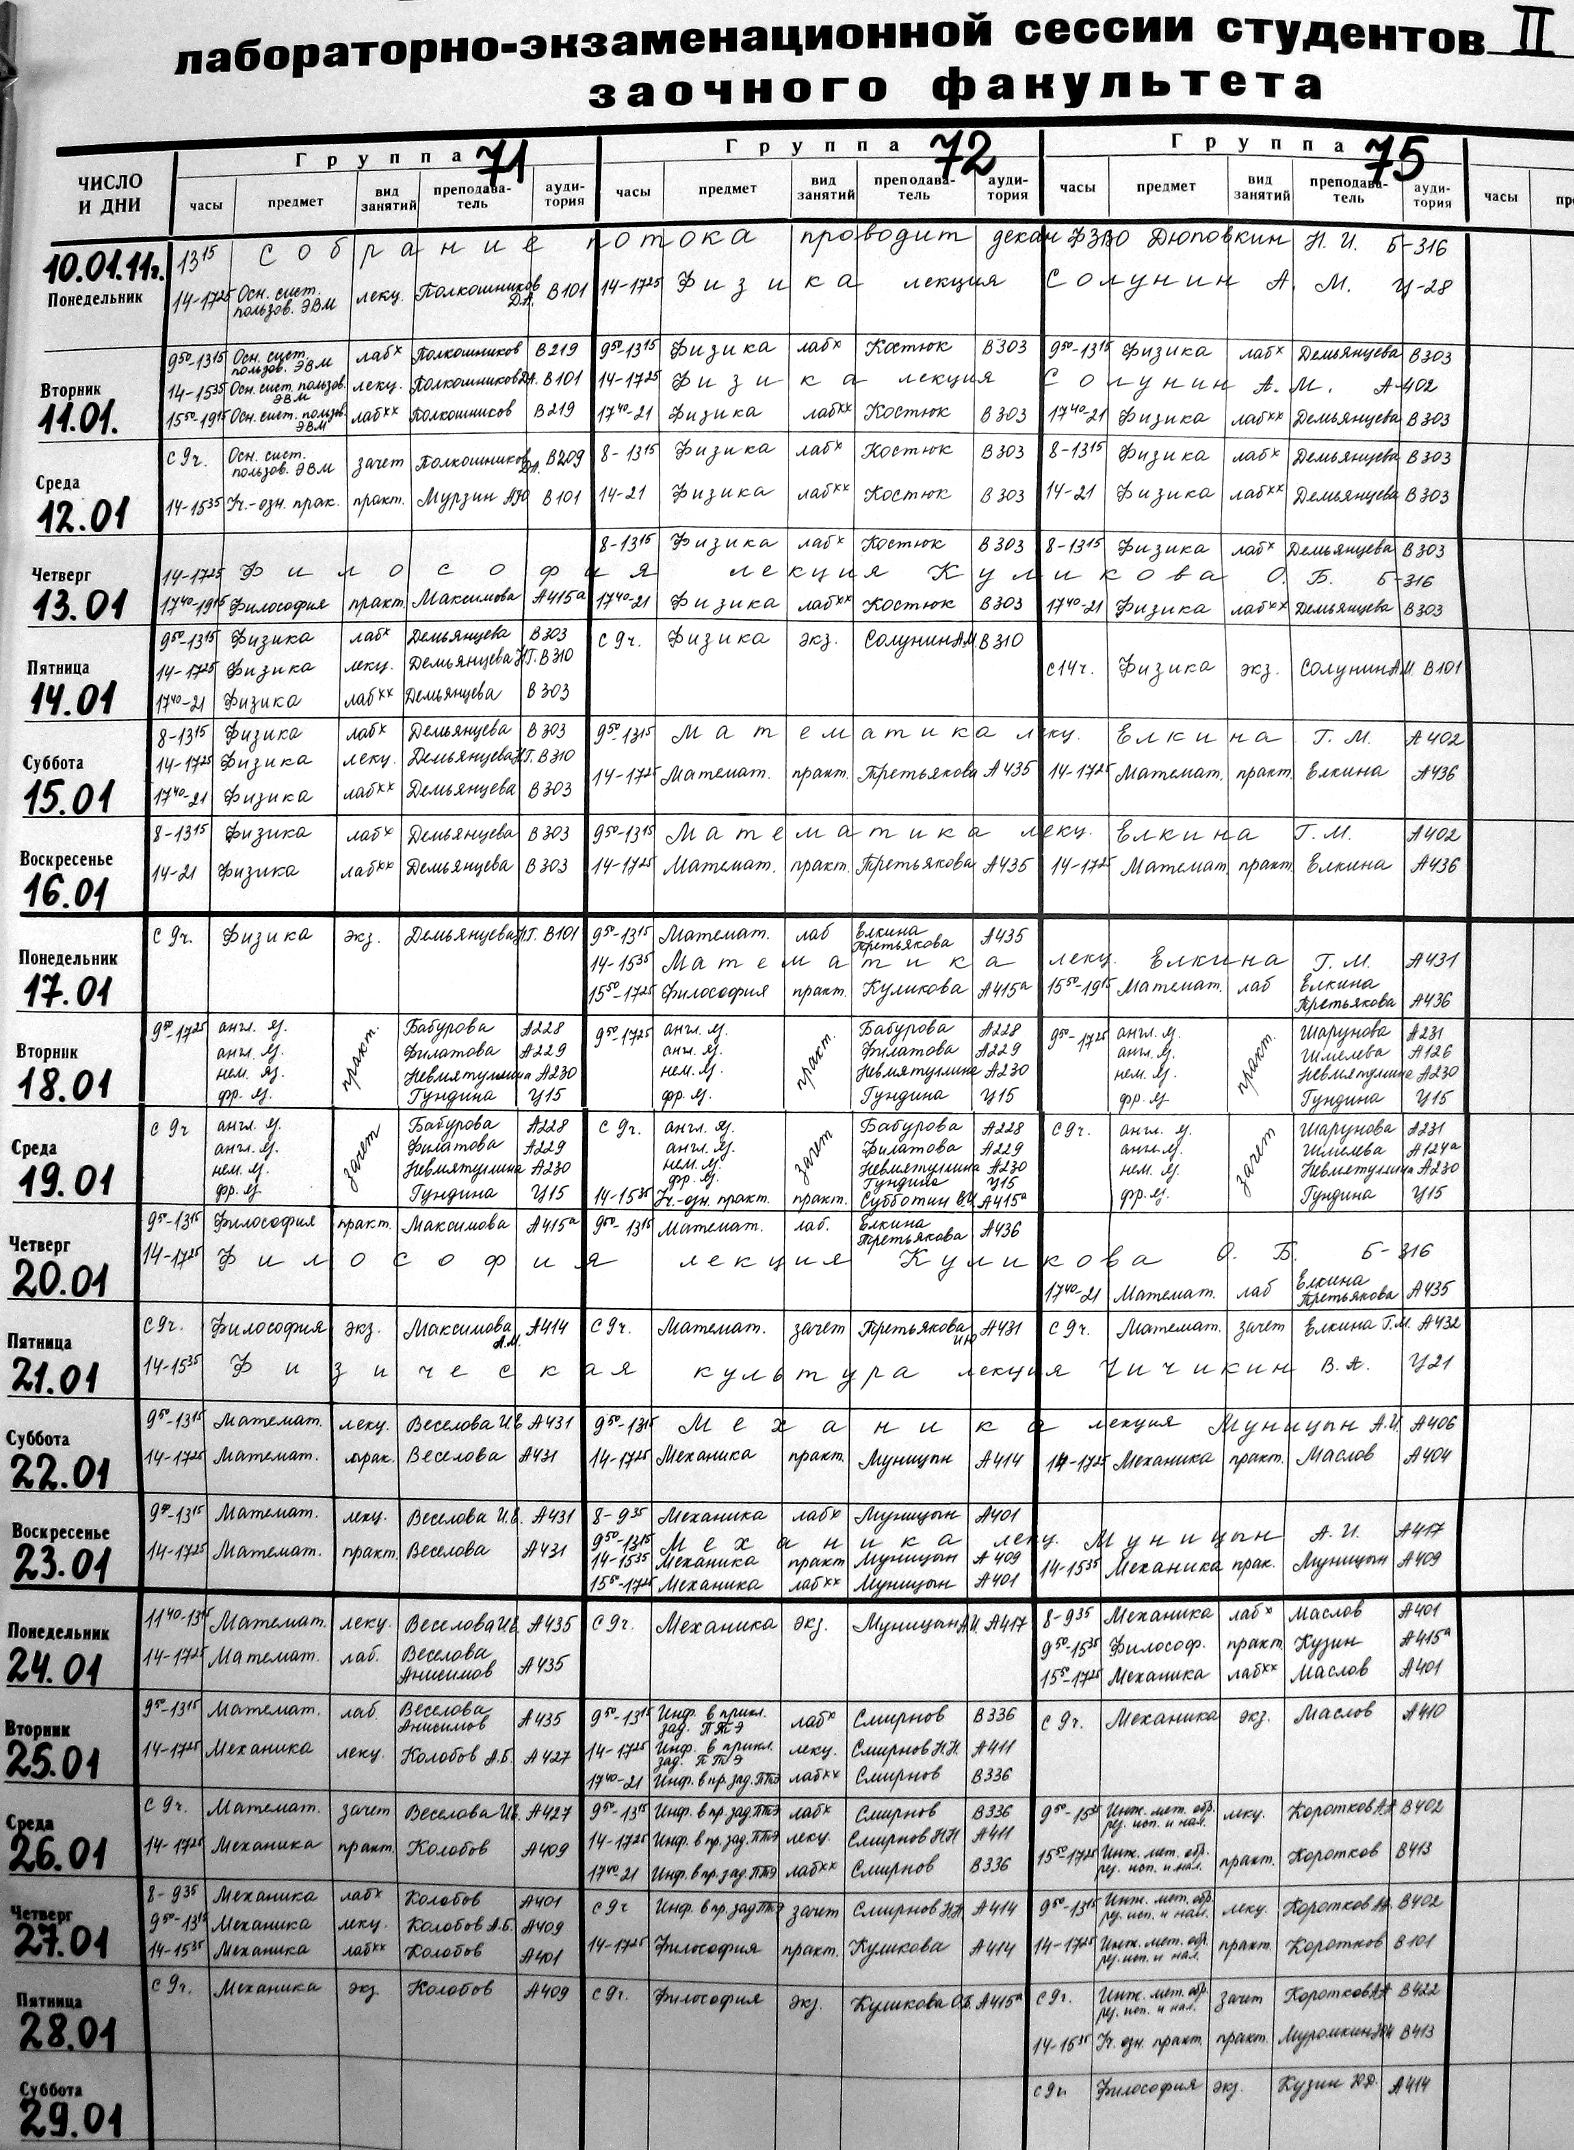 лабораторно-экзаменационной сессии студентов II
заочного факультета
ЧИСЛО И ДНИ
Группа 71 Группа 72 Группа 75
часы предмет вид занятий преподаватель аудитория часы предмет вид занятий преподаватель аудитория часы предмет вид занятий преподаватель аудитория часы
10.01.11г. Понедельник
13 15 Собрание потока проводит декан ФЗВО Дюповкин Н. И. Б-316
14-17 25 Осн. сист. пользов. ЭВМ лекц. Полкошников Д.А. В101 14-17 25 Физика лекция Солунин А. М. Ц-28
Вторник 11.01.
9 50-13 15 Осн. сист. пользов. ЭВМ лаб x Полкошников В219 9 50-13 15 Физика лаб x Костюк В303 9 50-13 15 Физика лаб x Демьянцева В303
14-15 35 Осн. сист. пользов. ЭВМ лекц. Полкошников Д.А. В101 14-17 25 Физика лекция Солунин А. М. А-402
15 50-19 15 Осн. сист. пользов. ЭВМ лаб xx Полкошников В219 17 40-21 Физика лаб xx Костюк В303 17 40-21 Физика лаб xx Демьянцева В303
Среда 12.01
с 9ч. Осн. сист. пользов. ЭВМ зачет Полкошников Д.А. В209 8-13 15 Физика лаб x Костюк В303 8-13 15 Физика лаб x Демьянцева В303
14-15 35 Уч.-озн. прак. практ. Мурзин А.Ю В101 14-21 Физика лаб xx Костюк В303 14-21 Физика лаб xx Демьянцева В303
Четверг 13.01
8-13 15 Физика лаб x Костюк В303 8-13 15 Физика лаб x Демьянцева В303
14-17 25 Философия лекция Куликова О. Б. Б-316
17 40-19 15 Философия практ. Максимова А415а 17 40-21 Физика лаб xx Костюк В303 17 40-21 Физика лаб xx Демьянцева В303
Пятница 14.01
9 50-13 15 Физика лаб x Демьянцева В303 с 9ч. Физика экз. Солунин А.М. В310
14-17 25 Физика лекц. Демьянцева Н.Г. В310 с 14ч. Физика экз. Солунин А.М. В101
17 40-21 Физика лаб xx Демьянцева В303
Суббота 15.01
8-13 15 Физика лаб x Демьянцева В303 9 50-13 15 Математика лекц. Елкина Г. М. А402
14-17 25 Физика лекц. Демьянцева Н.Г. В310 14-17 25 Математ. практ. Третьякова А435 14-17 25 Математ. практ. Елкина А436
17 40-21 Физика лаб xx Демьянцева В303
Воскресенье 16.01
8-13 15 Физика лаб x Демьянцева В303 9 50-13 15 Математика лекц. Елкина Г. М. А402
14-21 Физика лаб xx Демьянцева В303 14-17 25 Математ. практ. Третьякова А435 14-17 25 Математ. практ. Елкина А436
Понедельник 17.01
с 9ч. Физика экз. Демьянцева Н.Г. В101 9 50-13 15 Математ. лаб Елкина Третьякова А435
14-15 35 Математика лекц. Елкина Г. М. А431
15 50-17 25 Философия практ. Куликова А415а 15 50-19 15 Математ. лаб Елкина Третьякова А436
Вторник 18.01
9 50-17 25 англ. яз. практ. Бабурова А228 9 50-17 25 англ. яз. практ. Бабурова А228 9 50-17 25 англ. яз. практ. Шарунова А231
англ. яз. Филатова А229 англ. яз. Филатова А229 англ. яз. Шмелева А126
нем. яз. Невмятулина А230 нем. яз. Невмятулина А230 нем. яз. Невмятулина А230
фр. яз. Гундина Ц15 фр. яз. Гундина Ц15 фр. яз. Гундина Ц15
Среда 19.01
с 9ч англ. яз. зачет Бабурова А228 с 9ч. англ. яз. зачет Бабурова А228 с 9ч. англ. яз. зачет Шарунова А231
англ. яз. Филатова А229 англ. яз. Филатова А229 англ. яз. Шмелева А124а
нем. яз. Невмятулина А230 нем. яз. Невмятулина А230 нем. яз. Невмятулина А230
фр. яз. Гундина Ц15 фр. яз. Гундина Ц15 фр. яз. Гундина Ц15
14-15 35 Уч.-озн. практ. практ. Субботин В.И. А415а
Четверг 20.01
9 50-13 15 Философия практ. Максимова А415а 9 50-13 15 Математ. лаб. Елкина Третьякова А436
14-17 25 Философия лекция Куликова О. Б. Б-316
17 40-21 Математ. лаб Елкина Третьякова А435
Пятница 21.01
с 9ч. Философия экз. Максимова А.М. А414 с 9ч. Математ. зачет Третьякова А431 с 9ч. Математ. зачет Елкина Г.М. А432
14-15 35 Физическая культура лекция Чичикин В. А. Ц21
Суббота 22.01
9 50-13 15 Математ. лекц. Веселова И.Е. А431 9 50-13 15 Механика лекция Муницын А.И. А406
14-17 25 Математ. прак. Веселова А431 14-17 25 Механика практ. Муницын А414 14-17 25 Механика практ. Маслов А404
Воскресенье 23.01
9 50-13 15 Математ. лекц. Веселова И.Е. А431 8-9 35 Механика лаб x Муницын А401
9 50-13 15 Механика лекц. Муницын А. И. А417
14-17 25 Математ. практ. Веселова А431 14-15 35 Механика практ Муницын А409 14-15 35 Механика прак. Муницын А409
15 50-17 25 Механика лаб xx Муницын А401
Понедельник 24.01
11 40-13 15 Математ. лекц. Веселова И.Е. А435 с 9ч. Механика экз. Муницын А.И. А417 8-9 35 Механика лаб x Маслов А401
9 50-15 35 Философ. практ Кузин А415а
14-17 25 Математ. лаб. Веселова Анисимов А435 15 50-17 25 Механика лаб xx Маслов А401
Вторник 25.01
9 50-13 15 Математ. лаб. Веселова Анисимов А435 9 50-13 15 Инф. в прикл. зад. ПТЭ лаб x Смирнов В336 с 9ч. Механика экз. Маслов А410
14-17 25 Механика лекц. Колобов А.Б. А427 14-17 25 Инф. в прикл. зад. ПТЭ лекц. Смирнов Н.Н. А411
17 40-21 Инф. в пр. зад. ПТЭ лаб xx Смирнов В336
Среда 26.01
с 9ч. Математ. зачет Веселова И.Е. А427 9 50-13 15 Инф. в пр. зад ПТЭ лаб x Смирнов В336 9 50-15 35 Инж. мет. обр. рез. исп. и нал. лекц. Коротков А.А. В402
14-17 25 Механика практ. Колобов А409 14-17 25 Инф. в пр. зад. ПТЭ лекц. Смирнов Н.Н А411 15 50-17 25 Инж. мет. обр. рез. исп. и нал. практ. Коротков В413
17 40-21 Инф. в пр. зад. ПТЭ лаб xx Смирнов В336
Четверг 27.01
8-9 35 Механика лаб x Колобов А401 с 9ч Инф. в пр. зад ПТЭ зачет Смирнов Н.Н. А414 9 50-13 15 Инж. мет. обр. рез. исп. и нал. лекц. Коротков А.А. В402
9 50-13 15 Механика лекц. Колобов А.Б. А409
14-15 35 Механика лаб xx Колобов А401 14-17 25 Философия практ. Куликова А414 14-17 25 Инж. мет. обр. рез. исп. и нал. практ. Коротков В101
Пятница 28.01
с 9ч. Механика экз. Колобов А409 с 9ч. Философия экз. Куликова О.Б. А415а с 9ч. Инж. мет. обр. рез. исп. и нал. зачет Коротков А.А В422
14-15 35 Уч. озн. практ. практ. Муромкин В413
Суббота 29.01
с 9ч. Философия экз. Кузин Ю.Д. А414